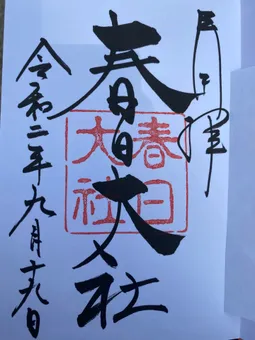 春日大社
春日
大社
令和二年九月十九日